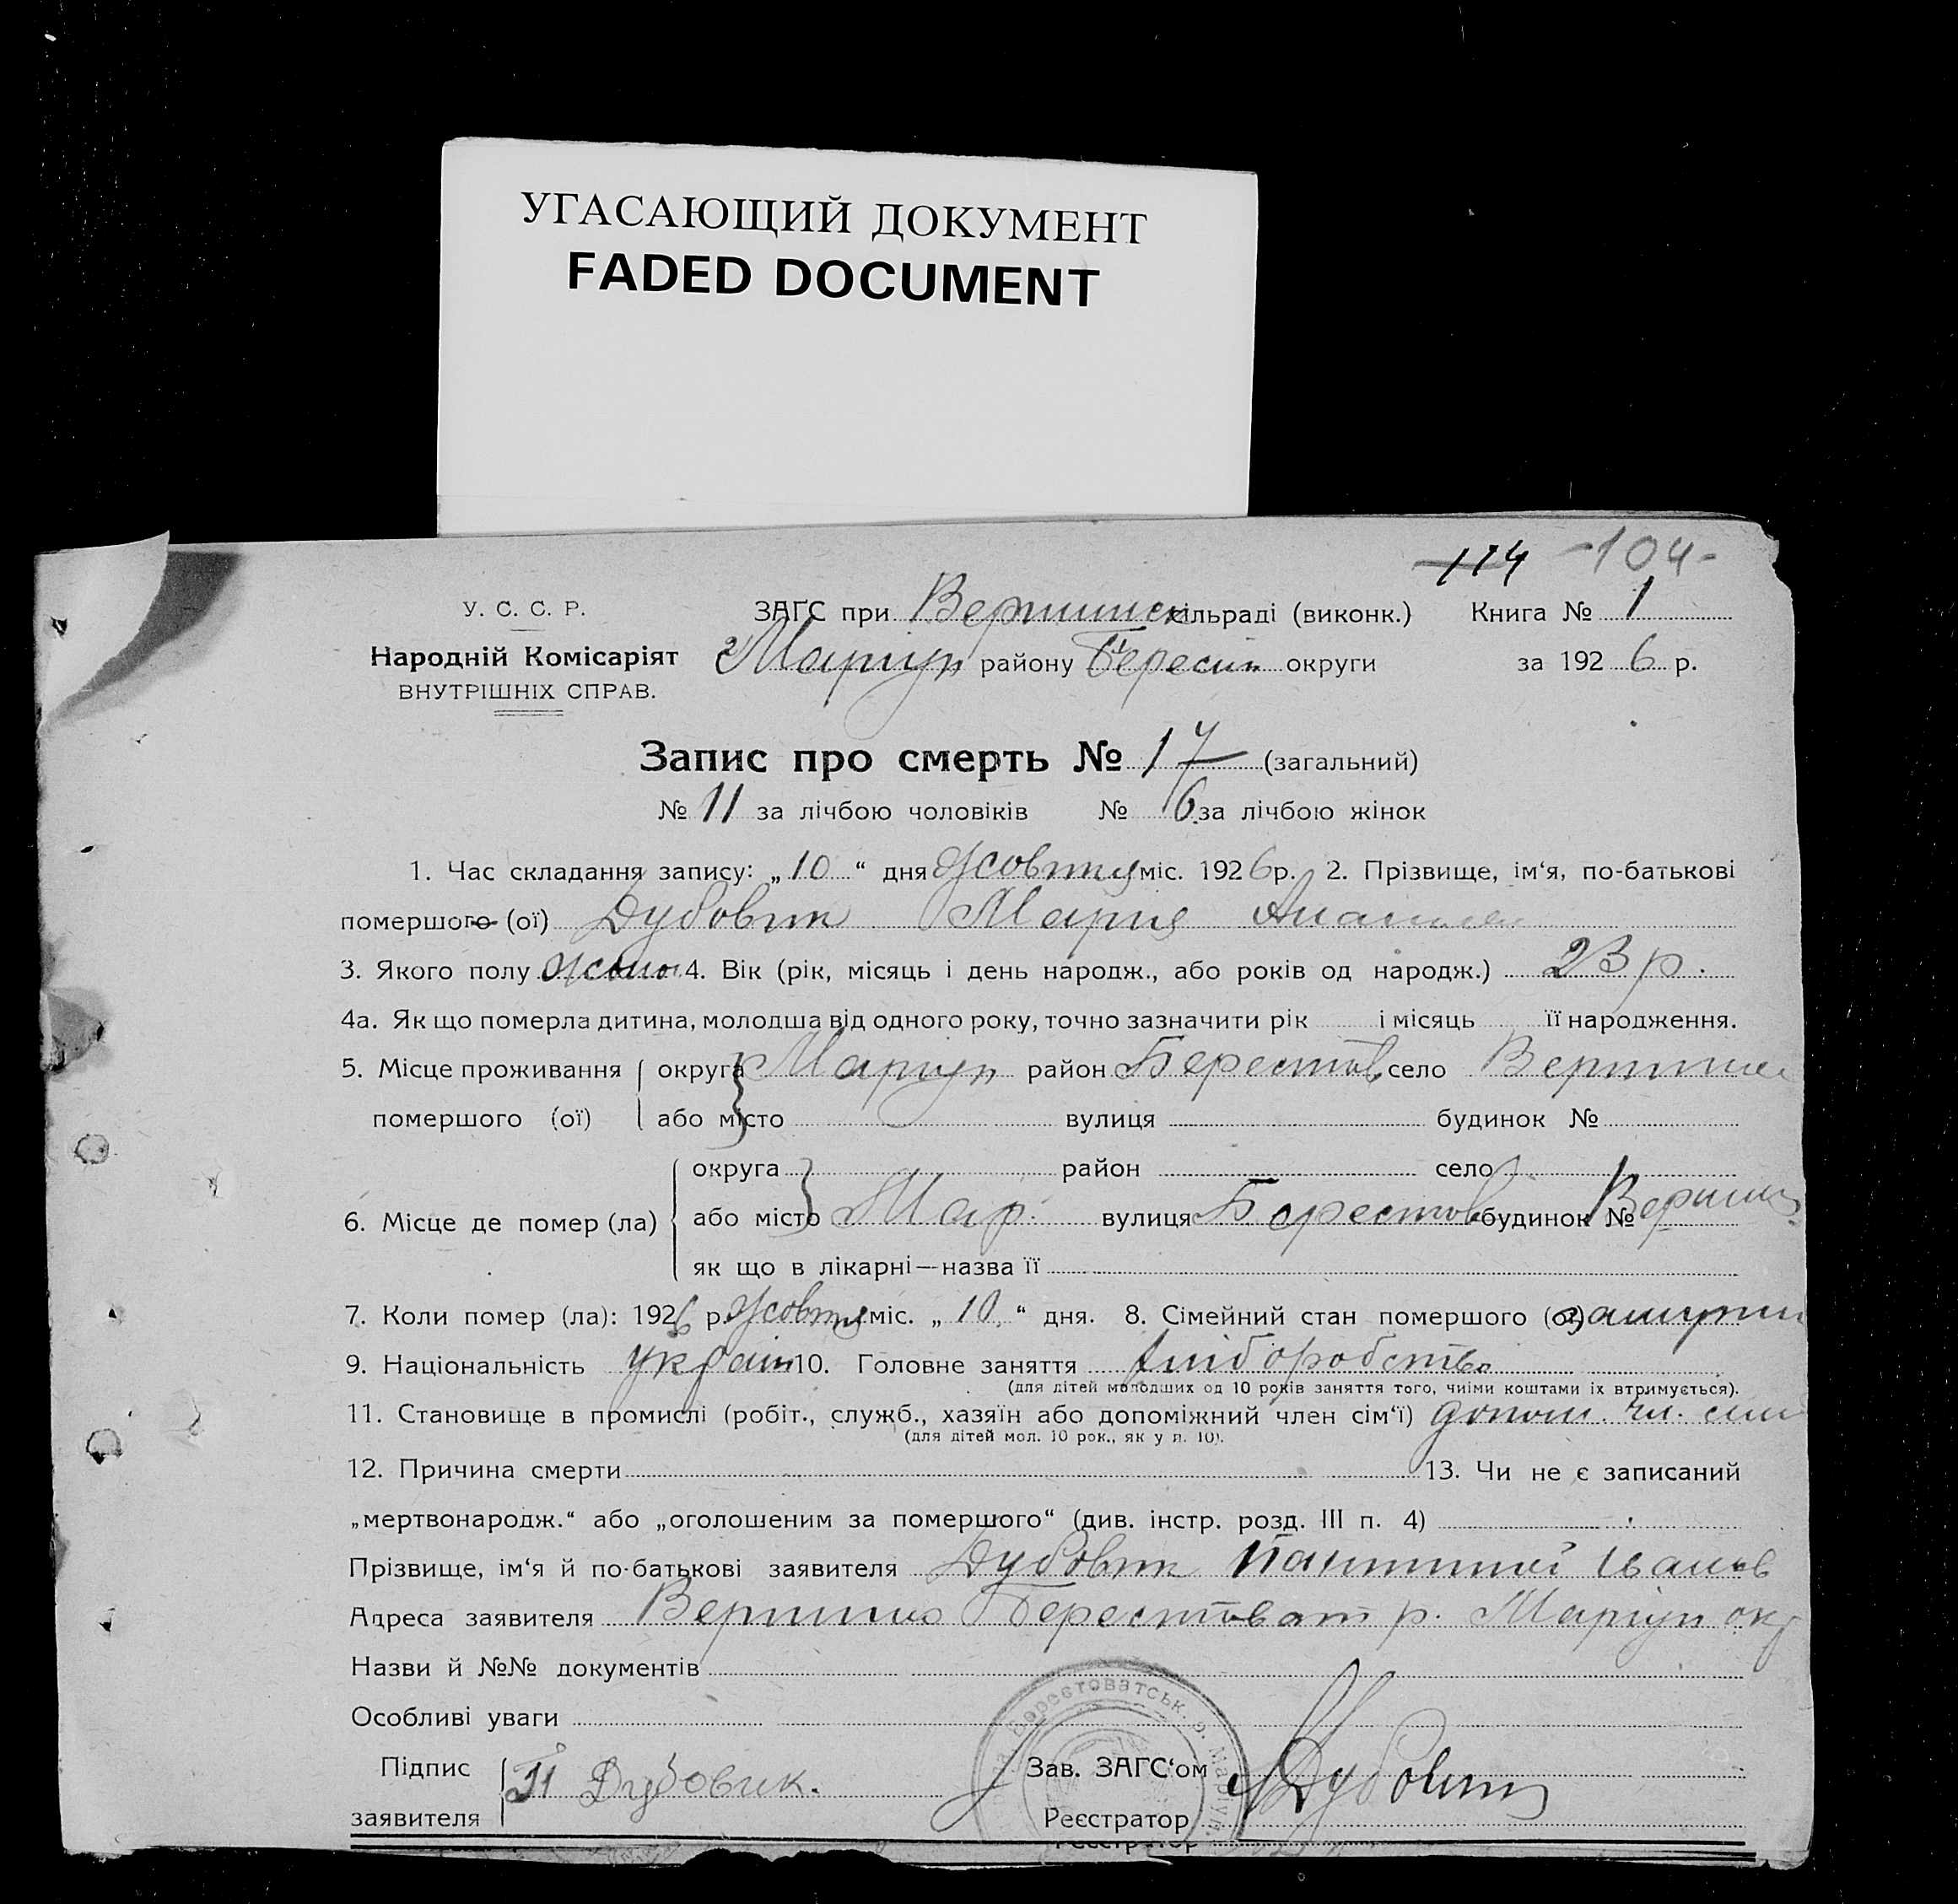 УГАСАЮЩИЙ ДОКУМЕНТ
FADED DOCUMENT
114 -104-
У. С. С. Р. ЗАГС при Вершинск сільраді (виконк.) Книга № 1
Народній Комісаріят Маріуп району Берест округи за 1926 р.
ВНУТРІШНІХ СПРАВ.
Запис про смерть № 17 (загальний)
№ 11 за лічбою чоловіків № 6 за лічбою жінок
1. Час складання запису: „10“ дня жовтня міс. 1926 р. 2. Прізвище, ім‘я, по-батькові
помершого (ої) Дубовик Марія
3. Якого полу жіноч 4. Вік (рік, місяць і день народж., або років од народж.) 23 р.
4а. Як що померла дитина, молодша від одного року, точно зазначити рік і місяць її народження.
5. Місце проживання округа Маріуп район Берестов село Вершин
помершого (ої) або місто вулиця будинок №
округа район село
6. Місце де помер (ла) або місто Мар. вулиця Берестов будинок № Вершин
як що в лікарні—назва її
7. Коли помер (ла): 1926 р. жовтня міс. „10“ дня. 8. Сімейний стан помершого (ої) замужн
9. Національність україн 10. Головне заняття хліборобство
(для дітей молодших од 10 років заняття того, чиіми коштами їх втримується).
11. Становище в промислі (робіт., служб., хазяїн або допоміжний член сім‘ї) допом. чл. сім
(для дітей мол. 10 рок., як у п. 10).
12. Причина смерти 13. Чи не є записаний
„мертвонародж.“ або „оголошеним за помершого“ (див. інстр. розд. III п. 4)
Прізвище, ім‘я й по-батькові заявителя Дубовик Іванов
Адреса заявителя Вершино Берестоват р. Маріуп окр
Назви й №№ документів
Особливі уваги
Берестоватськ. р. Маріуп.
Підпис П Дубовик. Зав. ЗАГС‘ом Дубовик
заявителя Реєстратор
Реєстратор